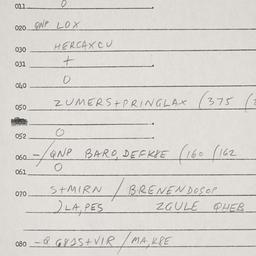 011 0
020 GNP LOX
030 HERCAXCU
031 +
0
040
050 ZUMERS+PRINGLAX (375
051
052 0
060 -/GNP BARO,DEFKKE (160 /162
061 0
070 S+MIRN / BRENENDOSOP
)LA,PES ZGULE QHEB
080 -Q G8JS+VIR /MA,KPE